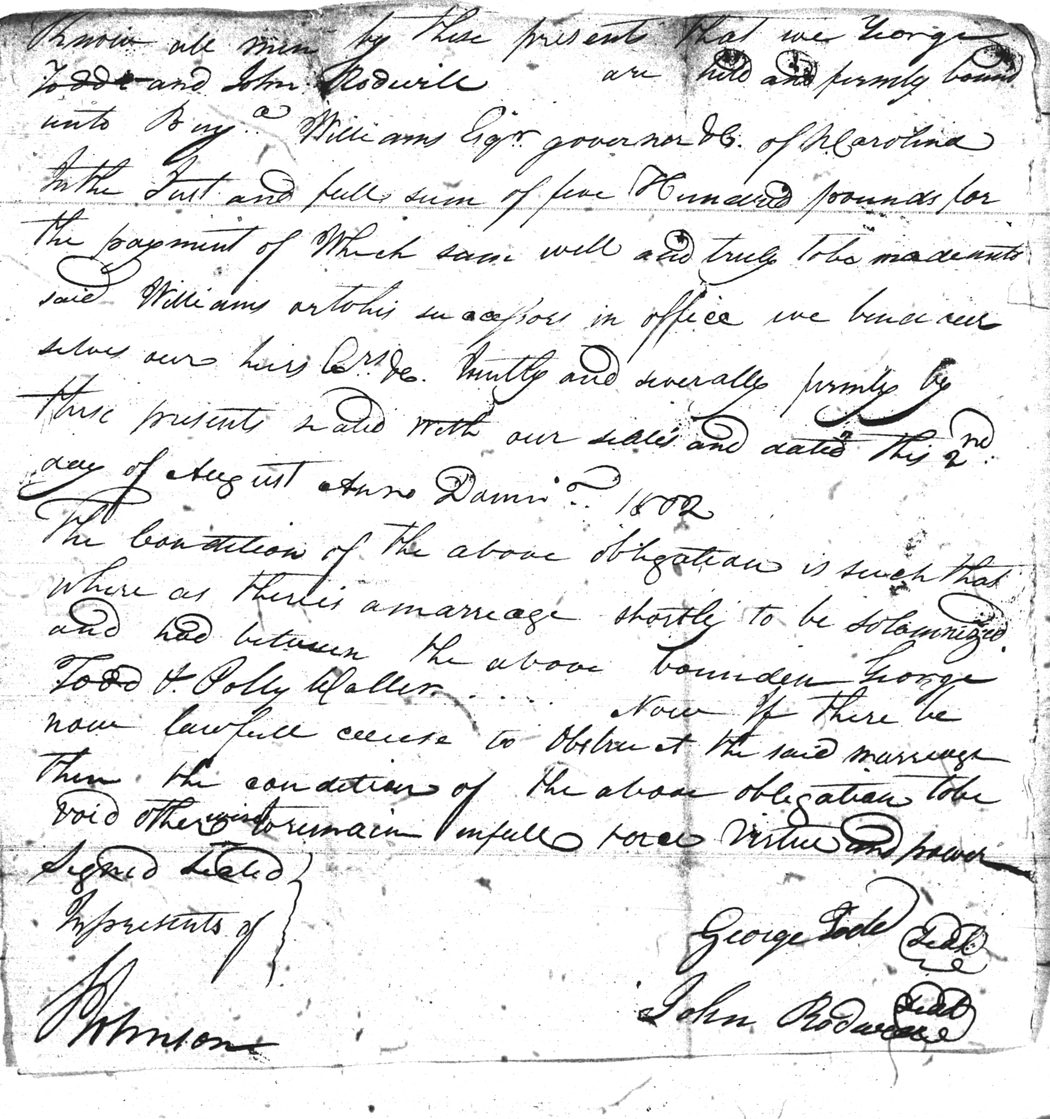 Know all men by these presents that we George
Todd and John Rodwell are held and firmly bound
unto Benj.a Williams Esqr. governor &C. of N Carolina
In the Just and full sum of five Hundred pounds for
the payment of Which sum well and truly tobe made unto
said Williams or tohis successors in office we bind our
selves our heirs Exrs. &C. Jointly and severally firmly by
these presents sealed with our seales and dated this 2nd
day of August Anno Domini 1802
The Condition of the above obligation is such that
where as thereis a marreage shortly to be solamnized
and had between the above bounden George
Todd & Polly Waller .... Now If there be
now lawfull cause to obstruct the said marreage
then the condition of the above obligation tobe
void otherwise toremain infull force Virtue and power
Signed Sealed
Inpresents of
George Todd Seal
John Rodwell Seal
Johnson